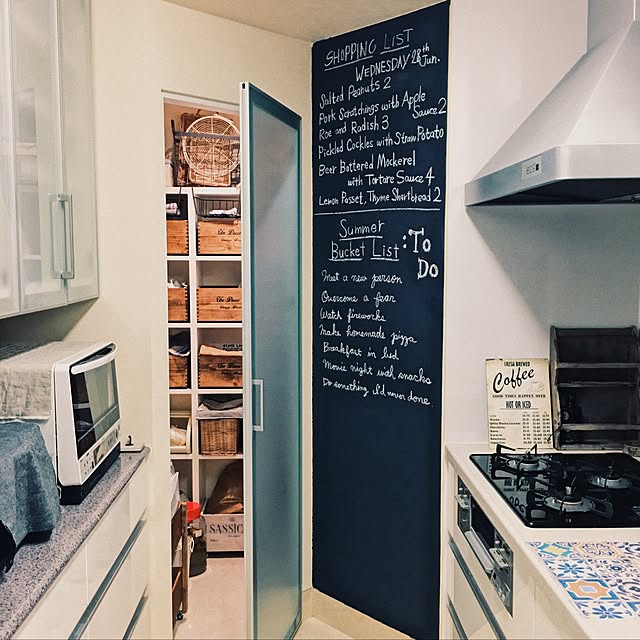 SHOPPING LIST
WEDNESDAY 28th Jun.
Salted Peanuts 2
Pork Scratchings with Apple
Sauce 2
Roe and Radish 3
Pickled Cockles with Straw Potato
Beer Battered Mackerel
with Tartare Sauce 4
Lemon Posset, Thyme Shortbread 2
Summer
Bucket List : To
Do
Meet a new person
Overcome a fear
Watch fireworks
Make homemade pizza
Breakfast in bed
Movie night with snacks
Do something I'd never done.
FRESH BREWED
Coffee
GOOD TIMES HAPPEN OVER
HOT OR ICED
SASSIC